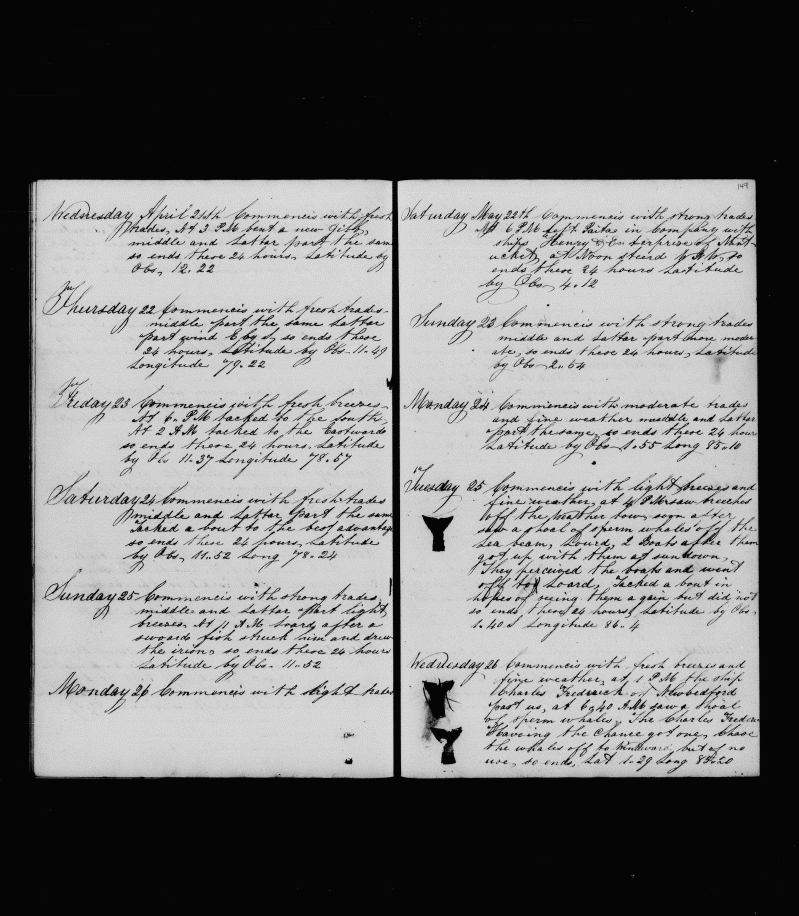 Wednesday April 21th Commencis with fresh
trades, At 3 PM bent a new Gibb,
middle and Lattar part the same
so ends these 24 hours, Latitude by
Obs, 12.22
Thursday 22 Commencis with fresh trades-
middle part the same Lattar
part wind E by S, so ends these
24 hours, Latitude by Obs- 11-49
Longitude 79.22
Friday 23 Commencis with fresh breezes-
At 6 P.M tacked to the South,
At 2 A.M tacked to the Eastward
so ends these 24 hours, Latitude
by Obs 11-37 Longitude 78.57
Saturday 24 Commencis with fresh trades
middle and Lattar part the same
Tacked a bout to the best advantag
so ends these 24 hours, Latitude
by Obs, 11..52 Long 78-24
Sunday 25 Commencis with strong trades,
middle and Lattar part light
breezes, At 11 A.M Loard after a
swoard fish struck him and drew
the irion, so ends these 24 hours
Latitude by Obs- 11-52
Monday 26 Commencis with light trades
149
Saturday May 22th Commencis with strong trades
At 6 P.M Left Paita in Company with
ships Henry & Enterprise of Nant
ucket, at Noon steird N.N.W, so
ends these 24 hours Latitude
by Obs, 4.12
Sunday 23 Commencis with strong trades
middle and Lattar part more moder
ate, so ends these 24 hours, Latitude
by Obs 2..54
Monday 24 Commencis with moderate trades
and fine weather middle and Lattar
part the same, so ends these 24 hour
Latitude by Obs- 1.55 Long 85.10
Tuesday 25 Commencis with light breezes and
fine weather, at 4 P.M saw breeches
off the weather bow, soon after
saw a shoal of sperm whales off the
Lea beam, Loward 2 Boats after them
got up with them at sundown,
They perceived the boats and went
off to Loard, Tacked a bout in
hopes of seeing them again but did not
so ends these 24 hours, Latitude by Obs,
1.40 S Longitude 86-4
Wednesday 26 Commencis with fresh breezes and
fine weather, at 1 P.M the ship
Charles Frederick of Newbedford
past us, at 6.40 A.M saw a shoal
of sperm whales, The Charles Freder
Haveing the Chance got one, Chase
the whales off to windward, but of no
use, so ends, Lat 1-29 Long